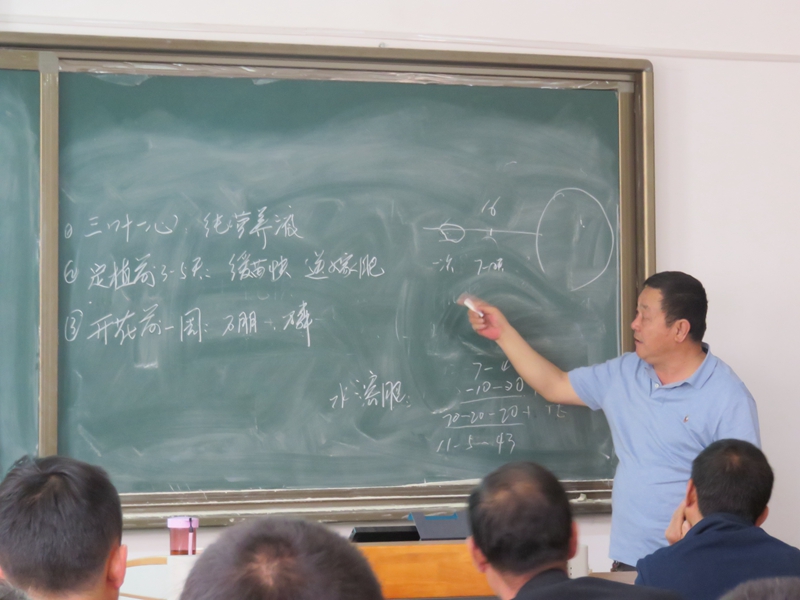 ① 三叶一心: 纯营养液
② 定植前3-5天: 缓苗快 送嫁肥
③ 开花前一周: 硼、磷
16
一次 7-
水溶肥:
-10-20
20-20-20+
11-5-43